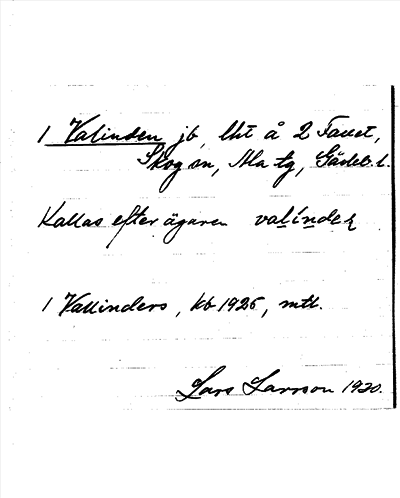 1 Valinden jb, lht å 2 Tavst,
Skog sn, Ala tg, Gävleb. l.
Kallas efter ägaren valinder
1 Vallinders, kb 1925, mtl.
Lars Larsson 1920.